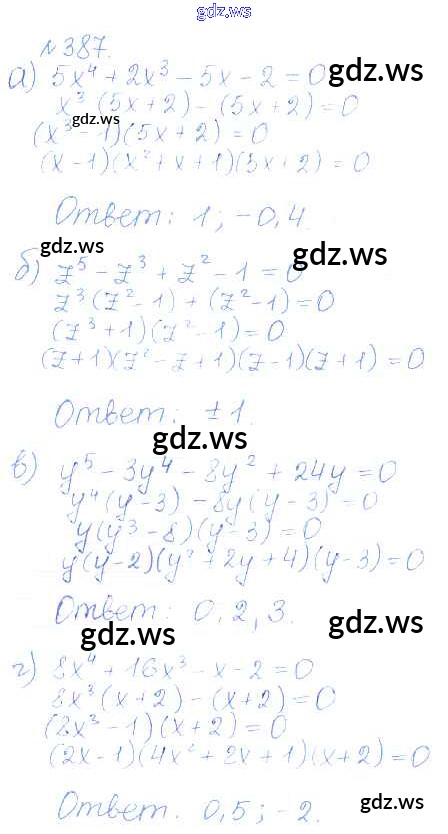 gdz.ws
№387.
а) 5x⁴ + 2x³ - 5x - 2 = 0
x³ (5x + 2) - (5x + 2) = 0
gdz.ws
(x³ - 1)(5x + 2) = 0
(x - 1)(x² + x + 1)(5x + 2) = 0
Ответ: 1; -0,4.
gdz.ws
gdz.ws
б) z⁵ - z³ + z² - 1 = 0
z³ (z² - 1) + (z² - 1) = 0
(z³ + 1)(z² - 1) = 0
(z + 1)(z² - z + 1)(z - 1)(z + 1) = 0
Ответ: ± 1.
gdz.ws
gdz.ws
в) y⁵ - 3y⁴ - 8y² + 24y = 0
y⁴ (y - 3) - 8y (y - 3) = 0
y(y³ - 8)(y - 3) = 0
y(y - 2)(y² + 2y + 4)(y - 3) = 0
Ответ: 0, 2, 3.
gdz.ws
gdz.ws
г) 8x⁴ + 16x³ - x - 2 = 0
8x³ (x + 2) - (x + 2) = 0
(8x³ - 1)(x + 2) = 0
(2x - 1)(4x² + 2x + 1)(x + 2) = 0
Ответ. 0,5; -2.
gdz.ws
gdz.ws